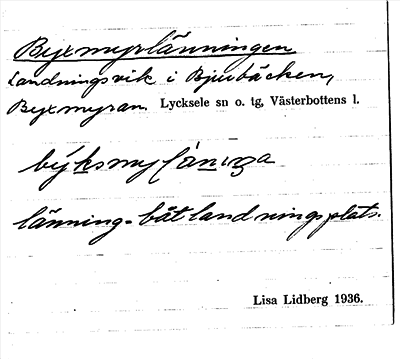 Byxmyrlänningen
Landningsvik i Bjurbäcken,
Byxmyran. Lycksele sn o. tg, Västerbottens l.
länning = båtlandningsplats.
Lisa Lidberg 1936.